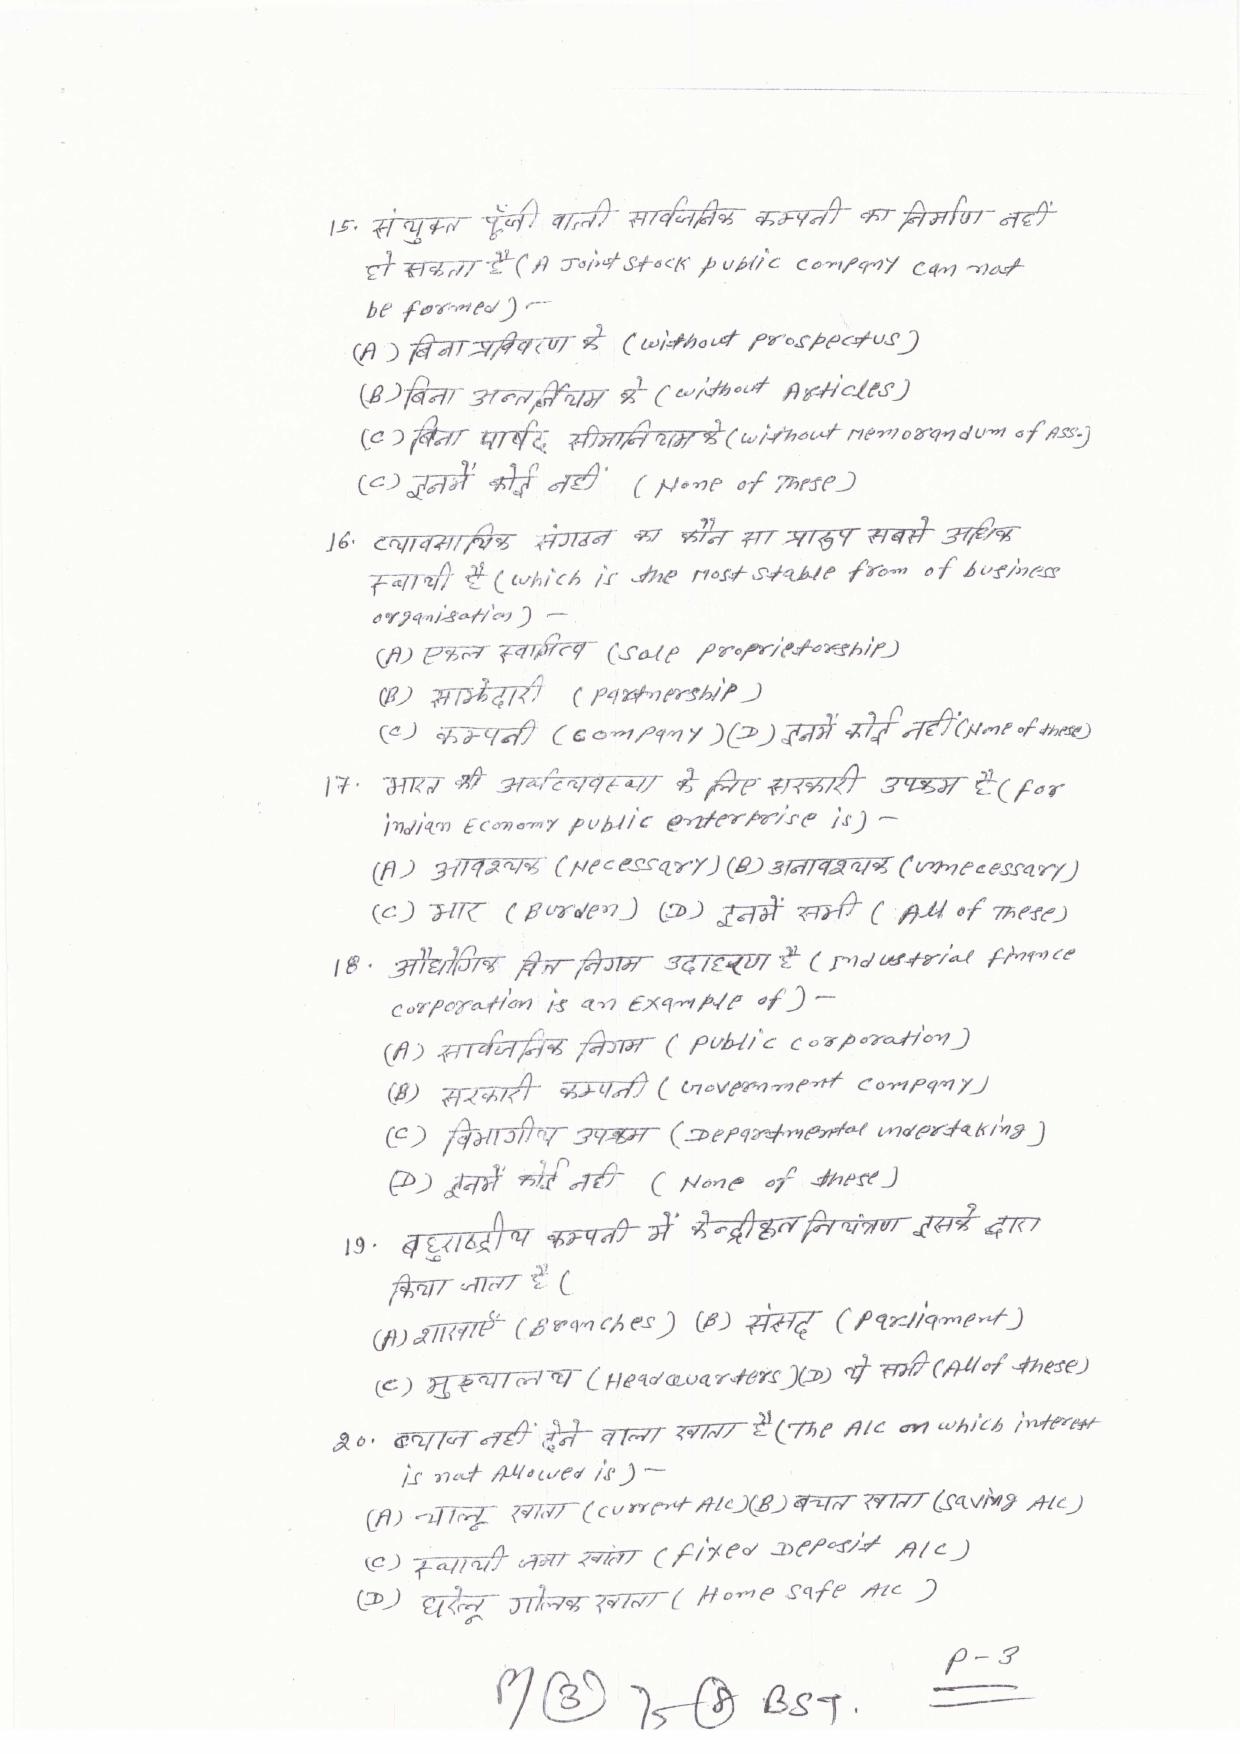 15. संयुक्त पूँजी वाली सार्वजनिक कम्पनी का निर्माण नहीं
हो सकता है (A Joint Stock public company can not
be formed) -
(A) बिना प्रविवरण के (without prospectus)
(B) बिना अन्तर्नियम के (without Articles)
(C) बिना पार्षद सीमानियम के (without Memorandum of Ass.)
(C) इनमें कोई नहीं (None of These)
16. व्यावसायिक संगठन का कौन सा प्रारूप सबसे अधिक
स्थायी है (which is the most stable from of business
organisation) -
(A) एकल स्वामित्व (Sole proprietorship)
(B) साझेदारी (partnership)
(C) कम्पनी (company) (D) इनमें कोई नहीं (None of these)
17. भारत की अर्थव्यवस्था के लिए सरकारी उपक्रम है (for
indian Economy public enterprise is) -
(A) आवश्यक (Necessary) (B) अनावश्यक (unnecessary)
(C) भार (Burden) (D) इनमें सभी (All of These)
18. औद्योगिक वित्त निगम उदाहरण है (Industrial finance
corporation is an Example of) -
(A) सार्वजनिक निगम (public corporation)
(B) सरकारी कम्पनी (Government company)
(C) विभागीय उपक्रम (Departmental undertaking)
(D) इनमें कोई नहीं (None of these)
19. बहुराष्ट्रीय कम्पनी में केन्द्रीकृत नियंत्रण इसके द्वारा
किया जाता है (
(A) शाखाएँ (Branches) (B) संसद (Parliament)
(C) मुख्यालय (Headquarters) (D) ये सभी (All of these)
20. ब्याज नहीं देने वाला खाता है (The A/c on which interest
is not Allowed is) -
(A) चालू खाता (current A/c) (B) बचत खाता (saving A/c)
(C) स्थायी जमा खाता (fixed Deposit A/c)
(D) घरेलू गोलक खाता (Home safe A/c)
P-3
BST.